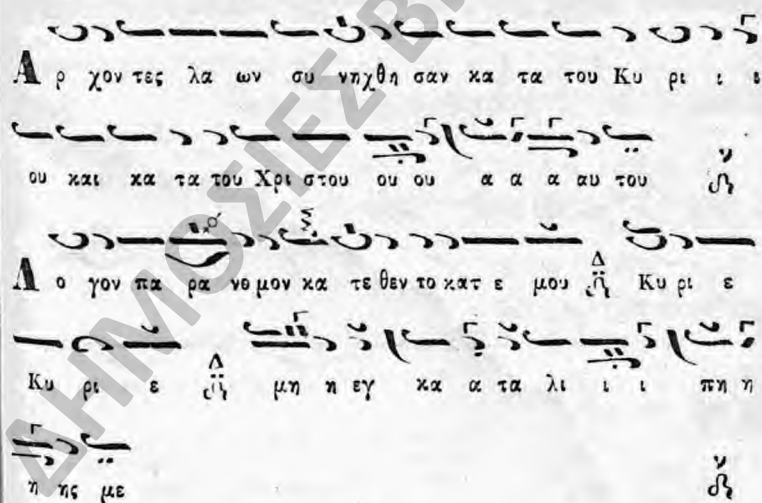 Α ρ χον τες λα ων συ νηχθη σαν κα τα του Κυ ρι ι ι
ου και κα τα του Χρι στου ου ου α α α αυ του ν
Λ ο γον πα ρα νο μον κα τε θεν το κατ ε μου Δ Κυ ρι ε
Κυ ρι ε Δ μη η εγ κα α τα λι ι ι πη η
η ης με ν
ΔΗΜΟΣΙΕΣ